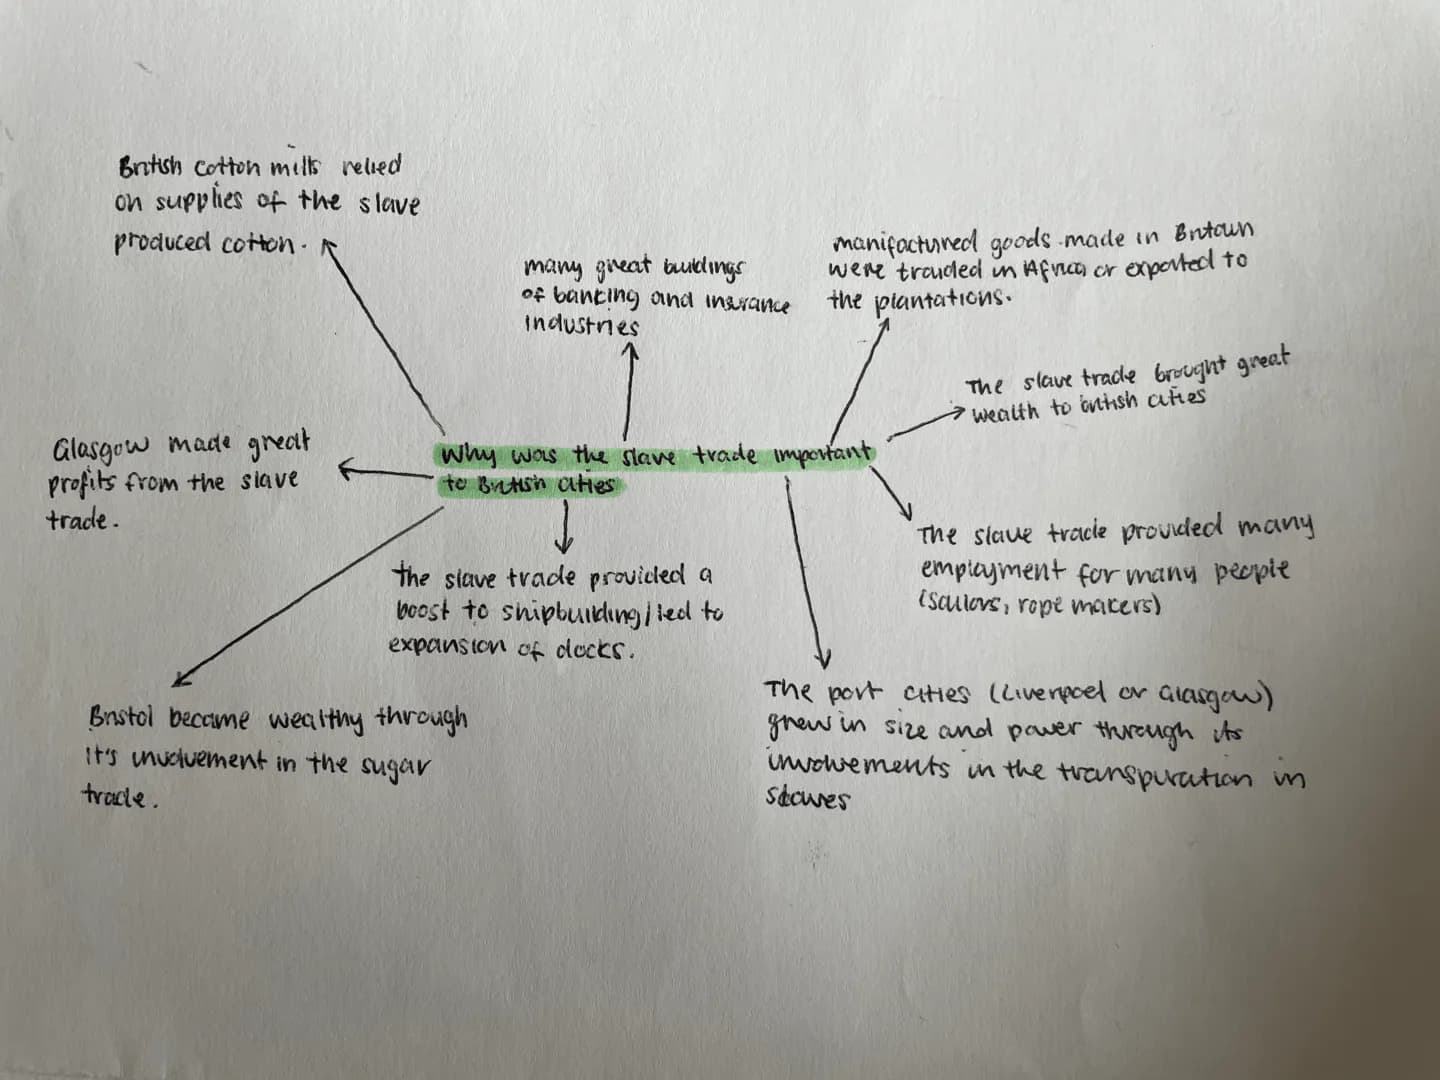 British cotton mills relied
on supplies of the slave
produced cotton.
many great buildings
of banking and insurance
industries
manifactured goods made in Britain
were traded in Africa or exported to
the plantations.
The slave trade brought great
wealth to british cities
Glasgow made great
profits from the slave
trade.
Why was the slave trade important
to British cities
The slave trade provided a
boost to shipbuilding/led to
expansion of docks.
The slave trade provided many
employment for many people
(sailors, rope makers)
Bristol became wealthy through
it's involvement in the sugar
trade.
The port cities (Liverpool or Glasgow)
grew in size and power through its
involvements in the transpuration in
slaves